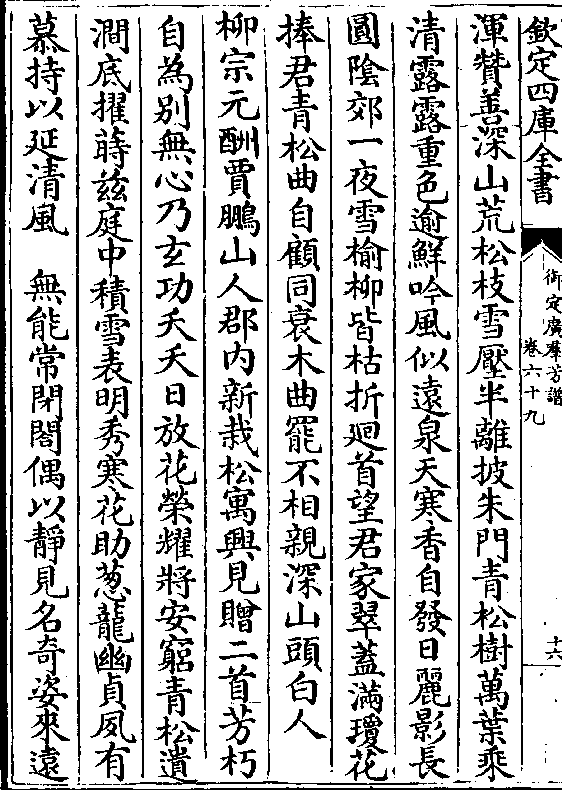 欽定四庫全書
御定廣羣芳譜
卷六十九
十六
渾贊善深山荒松枝雪壓半離披朱門青松樹萬葉乘
清露露重色逾鮮吟風似遠泉天寒香自發日麗影長
圓陰郊一夜雪榆柳皆枯折𢌞首望君家翠蓋滿瓊花
捧君青松曲自顧同衰木曲罷不相親深山頭白人
柳宗元酬賈鵬山人郡內新栽松寓興見贈二首芳朽
自為别無心乃玄功夭夭日放花榮耀將安窮青松遺
澗底擢蒔兹庭中積雪表明秀寒花助葱蘢幽貞夙有
慕持以延清風　無能常閉閤偶以靜見名奇姿來遠